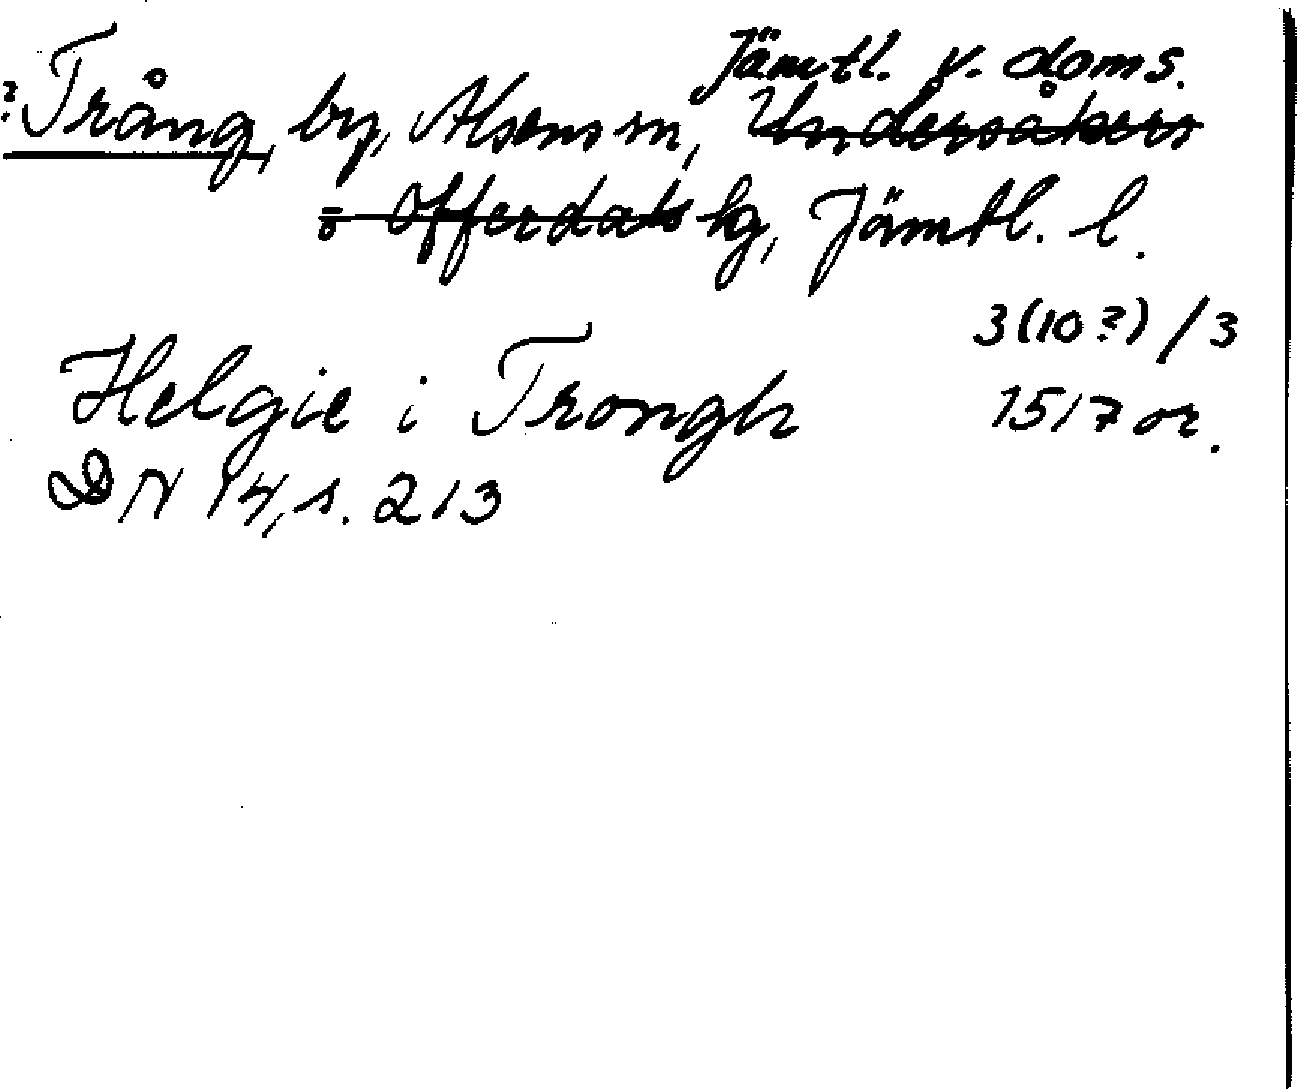 Jämtl. v. doms.
? Trång, by, Alsens sn, Undersåkers
o Offerdals hg, Jämtl. l.
3(10?)/3
Helgie i Trongh 1517 or.
DN 14, s. 213